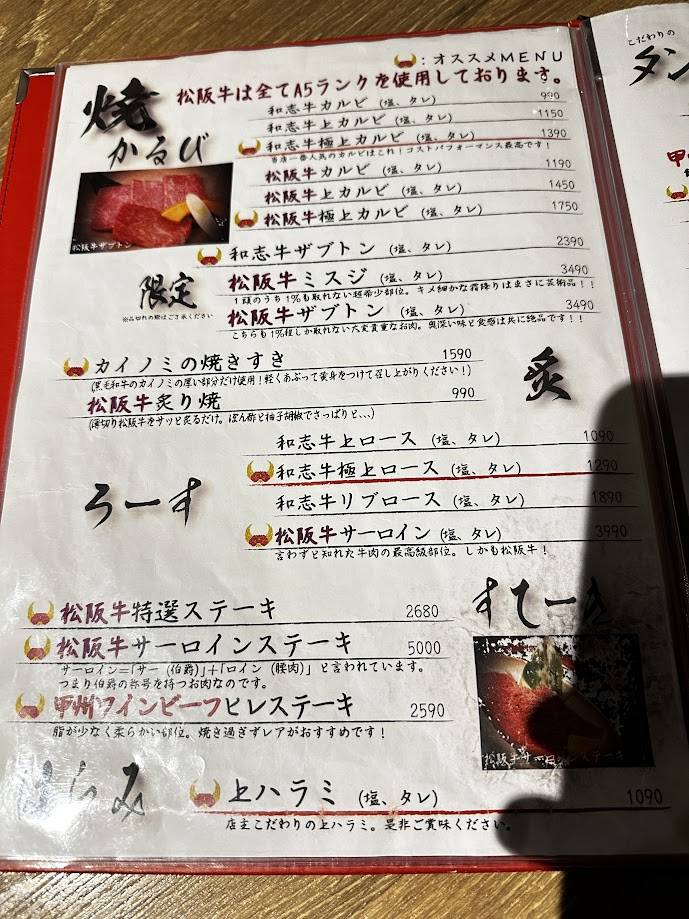 :オススメMENU
松阪牛は全てA5ランクを使用しております。
焼
かるび
和志牛カルビ (塩、タレ) 990
和志牛上カルビ (塩、タレ) 1150
和志牛極上カルビ (塩、タレ) 1390
当店一番人気のカルビはこれ!コストパフォーマンス最高です!
松阪牛カルビ (塩、タレ) 1190
松阪牛上カルビ (塩、タレ) 1450
松阪牛極上カルビ (塩、タレ) 1750
松阪牛ザブトン
和志牛ザブトン (塩、タレ) 2390
限定
※品切れの際はご了承ください
松阪牛ミスジ (塩、タレ) 3490
1頭のうち1%も取れない超希少部位。キメ細かな霜降りはまさに芸術品!!
松阪牛ザブトン (塩、タレ) 3490
こちらも1%程しか取れない大変貴重なお肉。奥深い味と食感は共に絶品です!!
カイノミの焼きすき 1590
(黒毛和牛のカイノミの厚い部分だけ使用!軽くあぶって黄身をつけて召し上がりください!)
松阪牛炙り焼 990
(薄切り松阪牛をサッと炙るだけ。ぽん酢と柚子胡椒でさっぱりと、、、)
炙
ろーす
和志牛上ロース (塩、タレ) 1090
和志牛極上ロース (塩、タレ) 1290
和志牛リブロース (塩、タレ) 1890
松阪牛サーロイン (塩、タレ) 3990
言わずと知れた牛肉の最高級部位。しかも松阪牛!
すてーき
松阪牛特選ステーキ 2680
松阪牛サーロインステーキ 5000
サーロイン=「サー(伯爵)」+「ロイン(腰肉)」と言われています。
つまり伯爵の称号を持つお肉なのです。
甲州ワインビーフヒレステーキ 2590
脂が少なく柔らかい部位。焼き過ぎずレアがおすすめです!
松阪牛サーロインステーキ
はらみ
上ハラミ (塩、タレ) 1090
店主こだわりの上ハラミ。是非ご賞味ください。
こだわりの
タン
甲